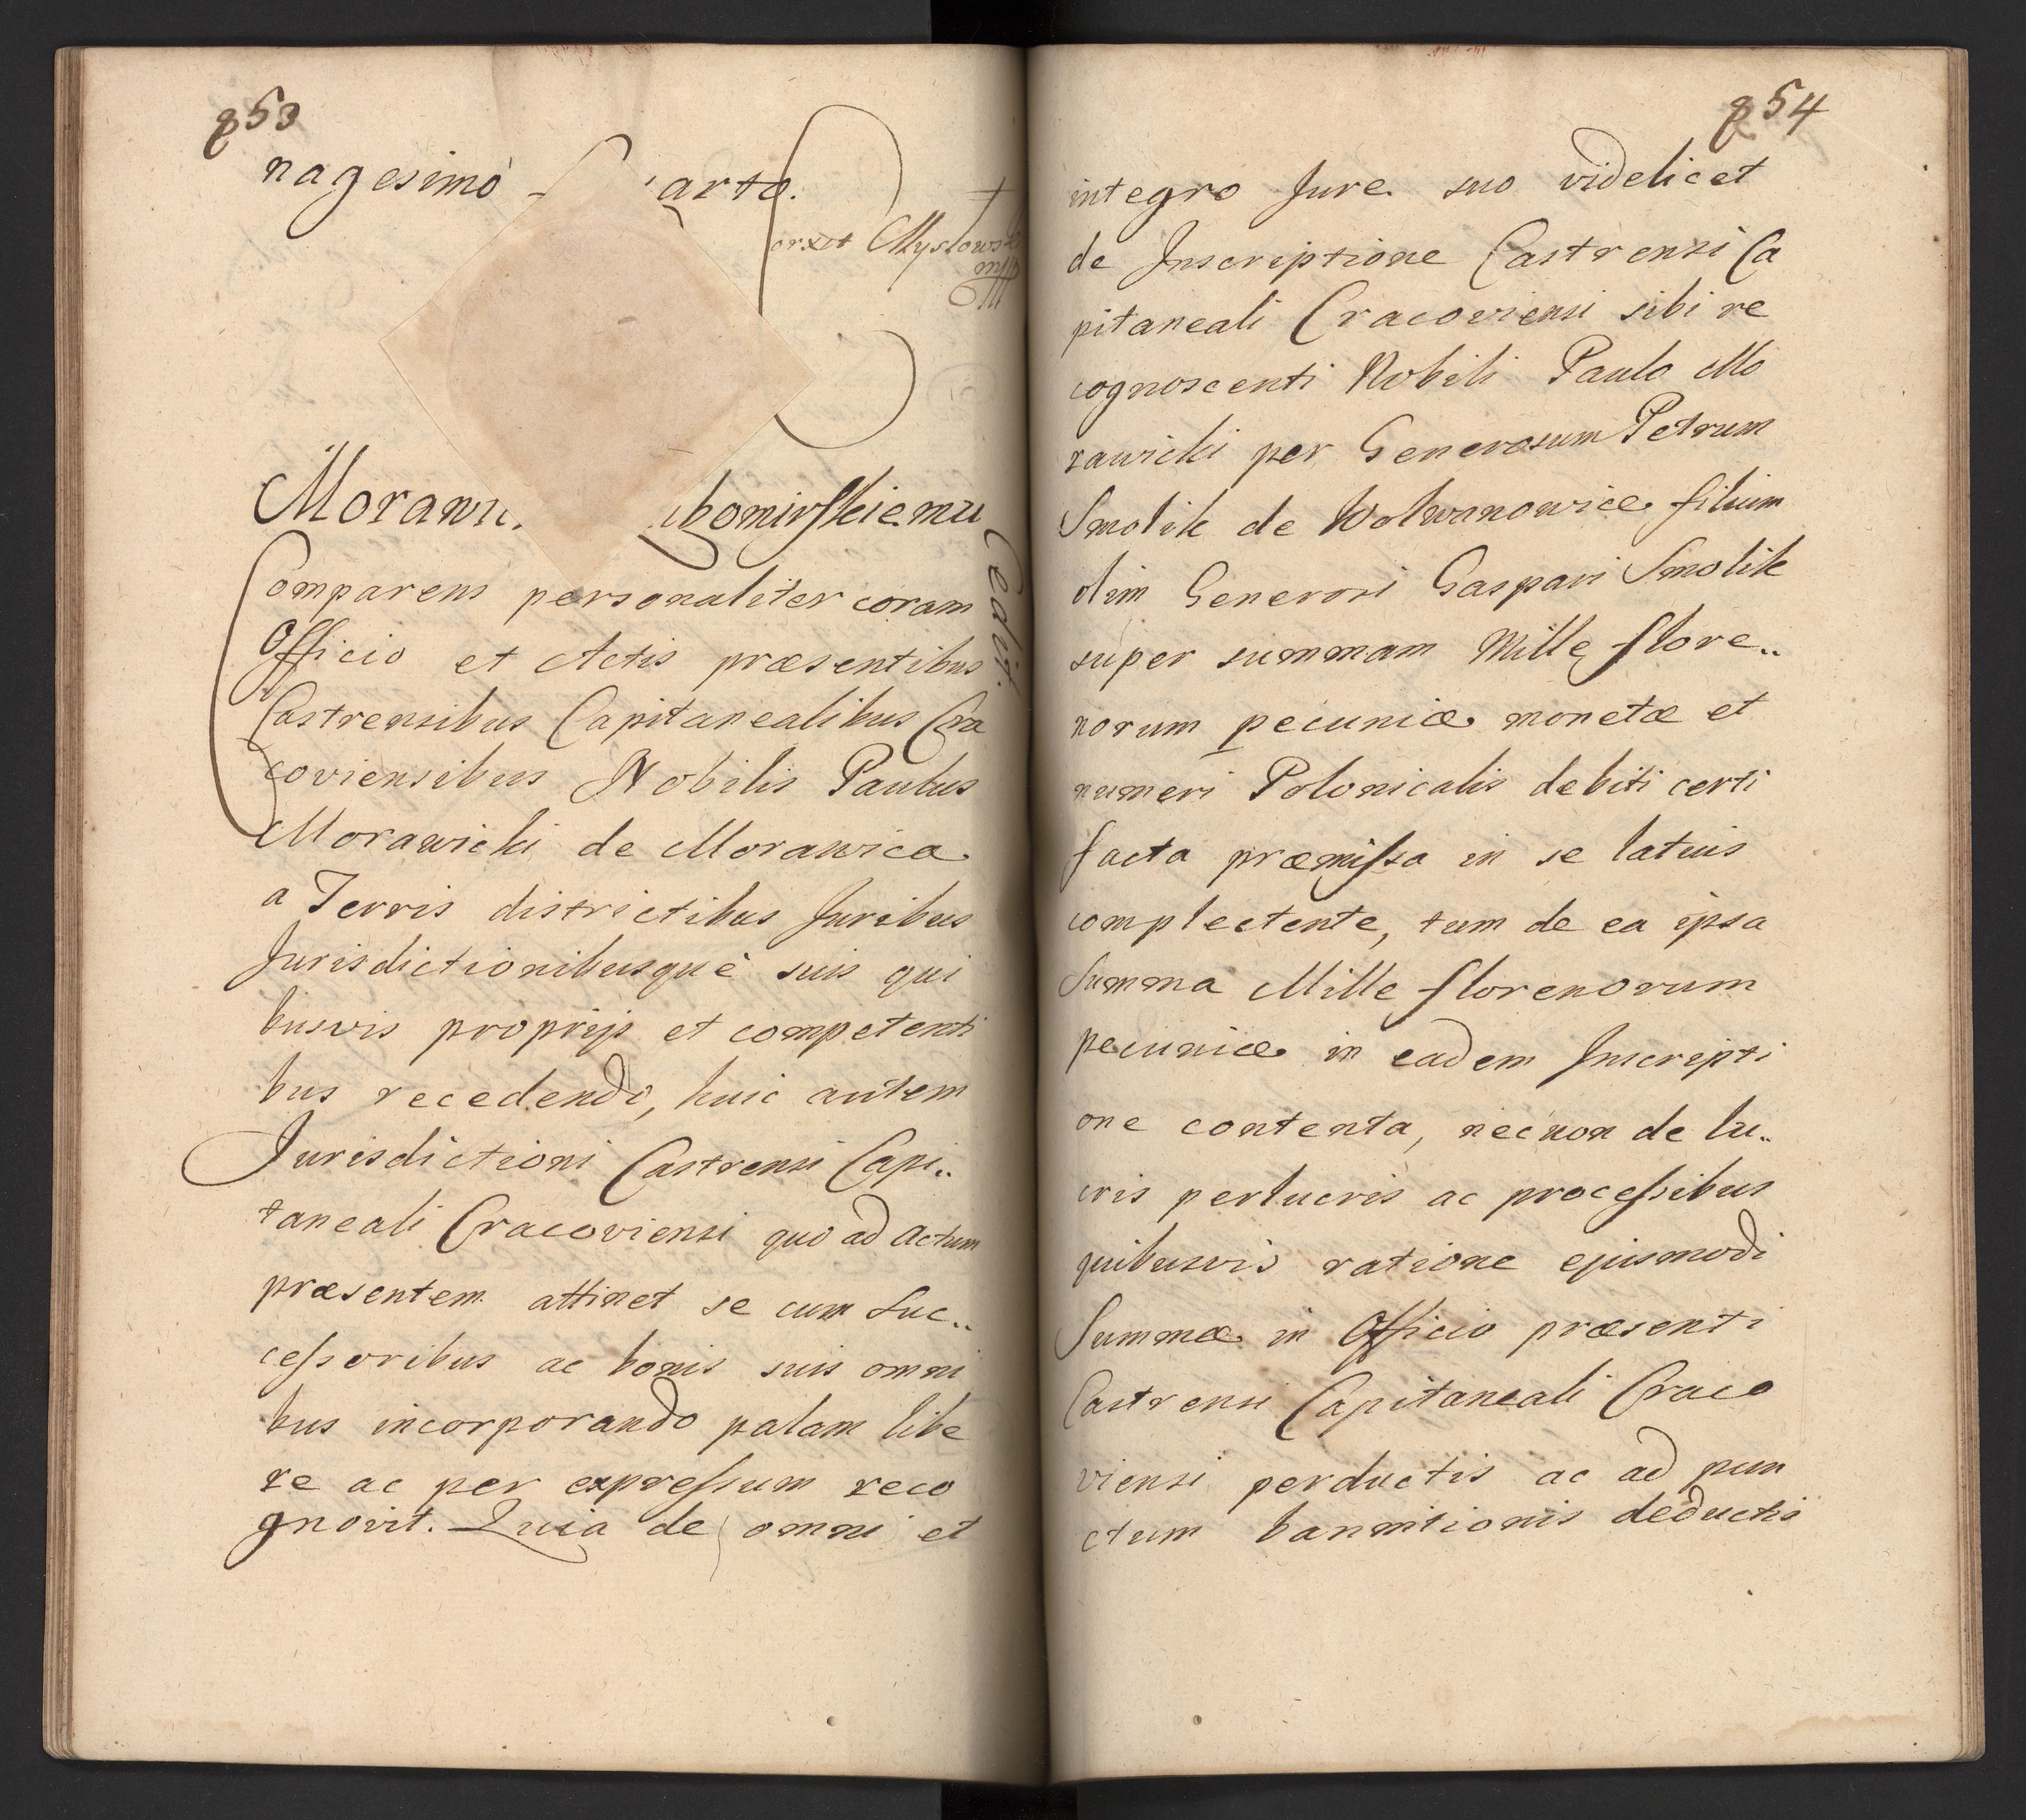 853
nagesimo arto.
orxit Mysłows
mpp
Moraw bomirskiemu
Cedit.
Comparens personaliter coram
Officio et Actis præsentibus
Castrensibus Capitanealibus Cra
coviensibus Nobilis Paulus
Morawicki de Morawica
a Terris districtibus Juribus
Jurisdictionibusquè suis qui
busvis proprijs et competenti
bus recedendo, huic autem
Jurisdictioni Castrensi Capi..
taneali Cracoviensi quo ad Actum
præsentem attinet se cum Suc..
cessoribus ac bonis suis omni
bus incorporando palam libe
re ac per expressum reco
gnovit. Quia de omni et
854
integro Jure suo videlicet
de Inscriptione Castrensi Ca
pitaneali Cracoviensi sibi re
cognoscenti Nobili Paulo Mo
rawicki per Generosum Petrum
Smolik de Wolwanowice filium
olim Generosi Gaspari Smolik
super summam Mille flore..
norum pecuniæ monetæ et
numeri Polonicalis debiti certi
facta præmissa in se latius
complectente, tum de ea ipsa
Summa Mille florenorum
pecuniæ in eadem Inscripti
one contenta, nec non de lu..
cris perlucris ac processibus
quibusvis ratione ejusmodi
Summæ in Officio præsenti
Castrensi Capitaneali Craco
viensi perductis ac ad pun
ctum bannitionis deductis